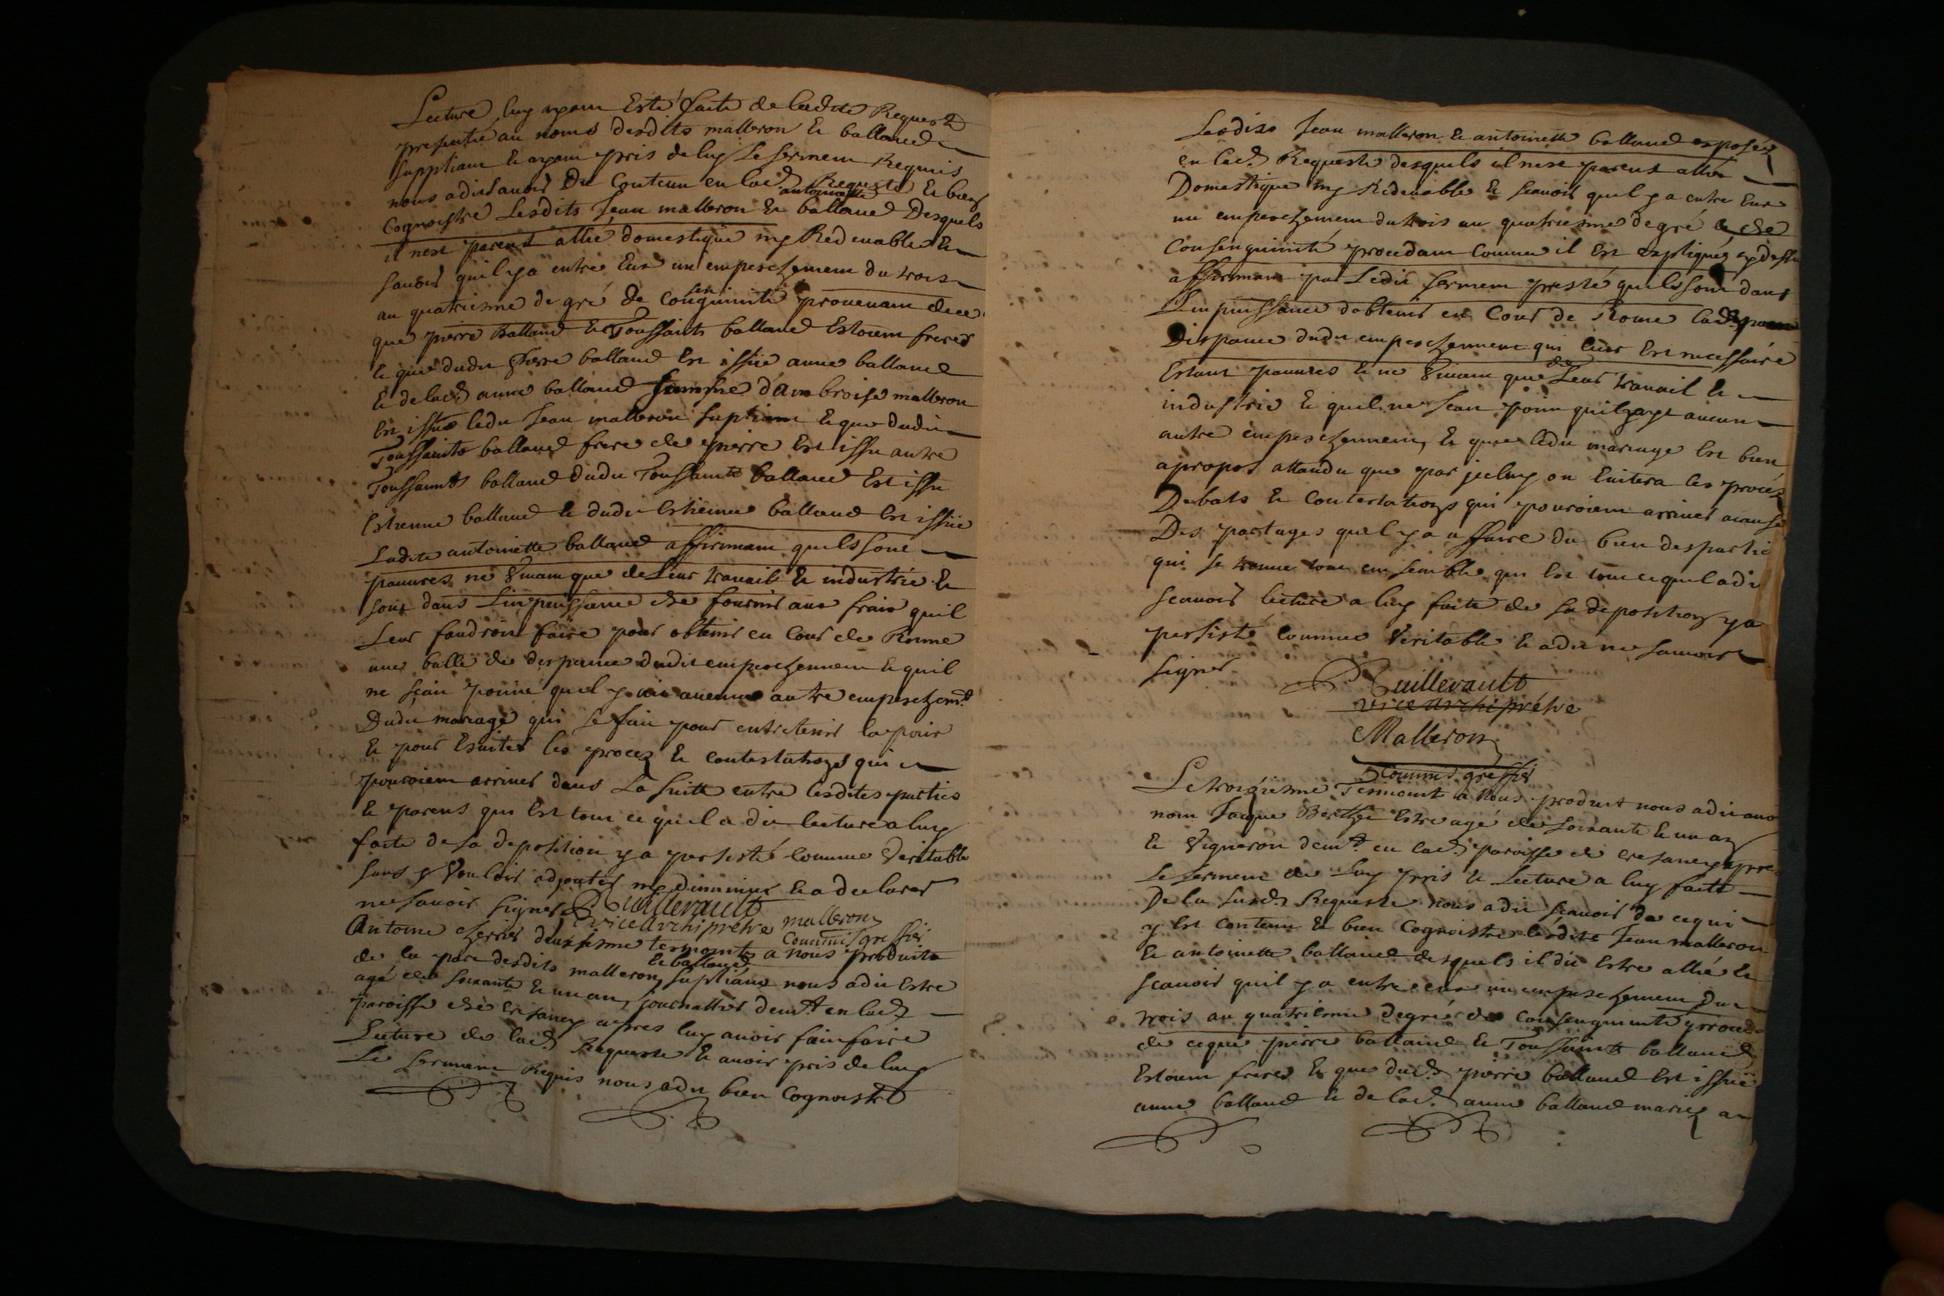 Lecture luy ayant esté faite de ladite Requeste
presentée au noms desdits malleron et balland
suppliant et ayant pris de luy le serment Requis
nous a dit savoir du Contenu en lad. Requeste et bien
Cognoistre Lesdits Jean malleron et antoinette balland Desquels
il nest parent allié domestique ny Redevable et
savoir quil y a entre Eux un empeschement du trois
au quatriesme degré de consenguinité provenant de ce
que pierre Balland et Toussaints balland Estoient freres
et que dudit pierre balland Est issüe anne balland
et de lad. anne balland femme d'Ambroise malleron
Est issue ledit Jean malleron supliant et que dudit
Toussaints balland frere de pierre Est issu autre
Toussaints balland dudit Toussaints balland Est issu
Estienne balland et dudit Estienne balland Est issüe
Ladite antoinette balland affirmant quils sont
pauvres ne vivant que de Leur travail et industrie et
sont dans Limpuissance de fournir aux frais quil
Leur faudroit faire pour obtenir en Cour de Rome
une bulle de dispance dudit empeschement et quil
ne scait point quil y ait aucune autre empeschemt
Dudit mariage qui se fait pour entretenir la paix
et pour Esviter les procez et contestations qui
pouroient arriver dans La suitte entre lesdites parties
et parens qui Est tout ce quil a dit lecture a luy
faite de sa deposition y a persisté comme veritable
sans y vouloir adjouter ny diminuer et a declaré
ne savoir signer P. Cuillerault
vice archiprêtre malleron
Commis greffier
Antoine deuxiesme temoint a nous produit
de la part desdits malleron et balland supliant nous a dit Estre
agé de soixante et un an, demt en lad.
paroisse de cresancy apres luy avoir fait faire
Lecture de lad. Requeste et avoir pris de luy
Le serment Requis nous a dit bien Cognoistre
Lesdits Jean malleron et antoinette balland exposés
en lad. Requeste desquels il nest parent allié
Domestique ny Redevable et scavoir quil y a entre Eux
un empeschement du trois au quatriesme degré de
Consenguinité procedant comme il Est expliqué cy dessus
affirmant par Ledit serment presté quils sont dans
Limpuissance dobtenir en Cour de Rome lad.
Dispance dudit empeschement qui leur Est necessaire
Estant pauvres et ne vivant que de Leur travail et
industrie et quil ne scait point quil y aye aucun
autre empeschement, et que ledit mariage Est bien
apropos attandu que par jceluy on Evitera les procez
Debats et Contestations qui pouroient arriver a cause
Des partages quil y a a ffaire du bien desparti
qui se trouve tout ensemble qui Est tout ce quil a dit
scavoir lecture a luy faite de sa deposition y a
persisté comme veritable et a dit ne savoir
signer
P. Cuillerault
vice archiprêtre
Malleron
Commis greffier
Le troisiesme Temoint a Nous produit nous a dit avoir
nom Jacque Estre agé de soixante et un an
et Vigneron demt en lad. paroisse de cresancy apres
Le serment de Luy pris et Lecture a luy faite
De la susd. Requeste nous a dit scavoir de ce qui
y Est contenu et bien Cognoistre lesdits Jean malleron
et antoinette balland desquels il dit Estre allié et
scavoir quil y a entre eux un empeschement du
trois au quatriesme degré de consenguinité
de ce que pierre balland et Toussaints balland
Estoient freres et que dud. pierre balland Est issüe
anne balland et de lad. anne balland mariez a